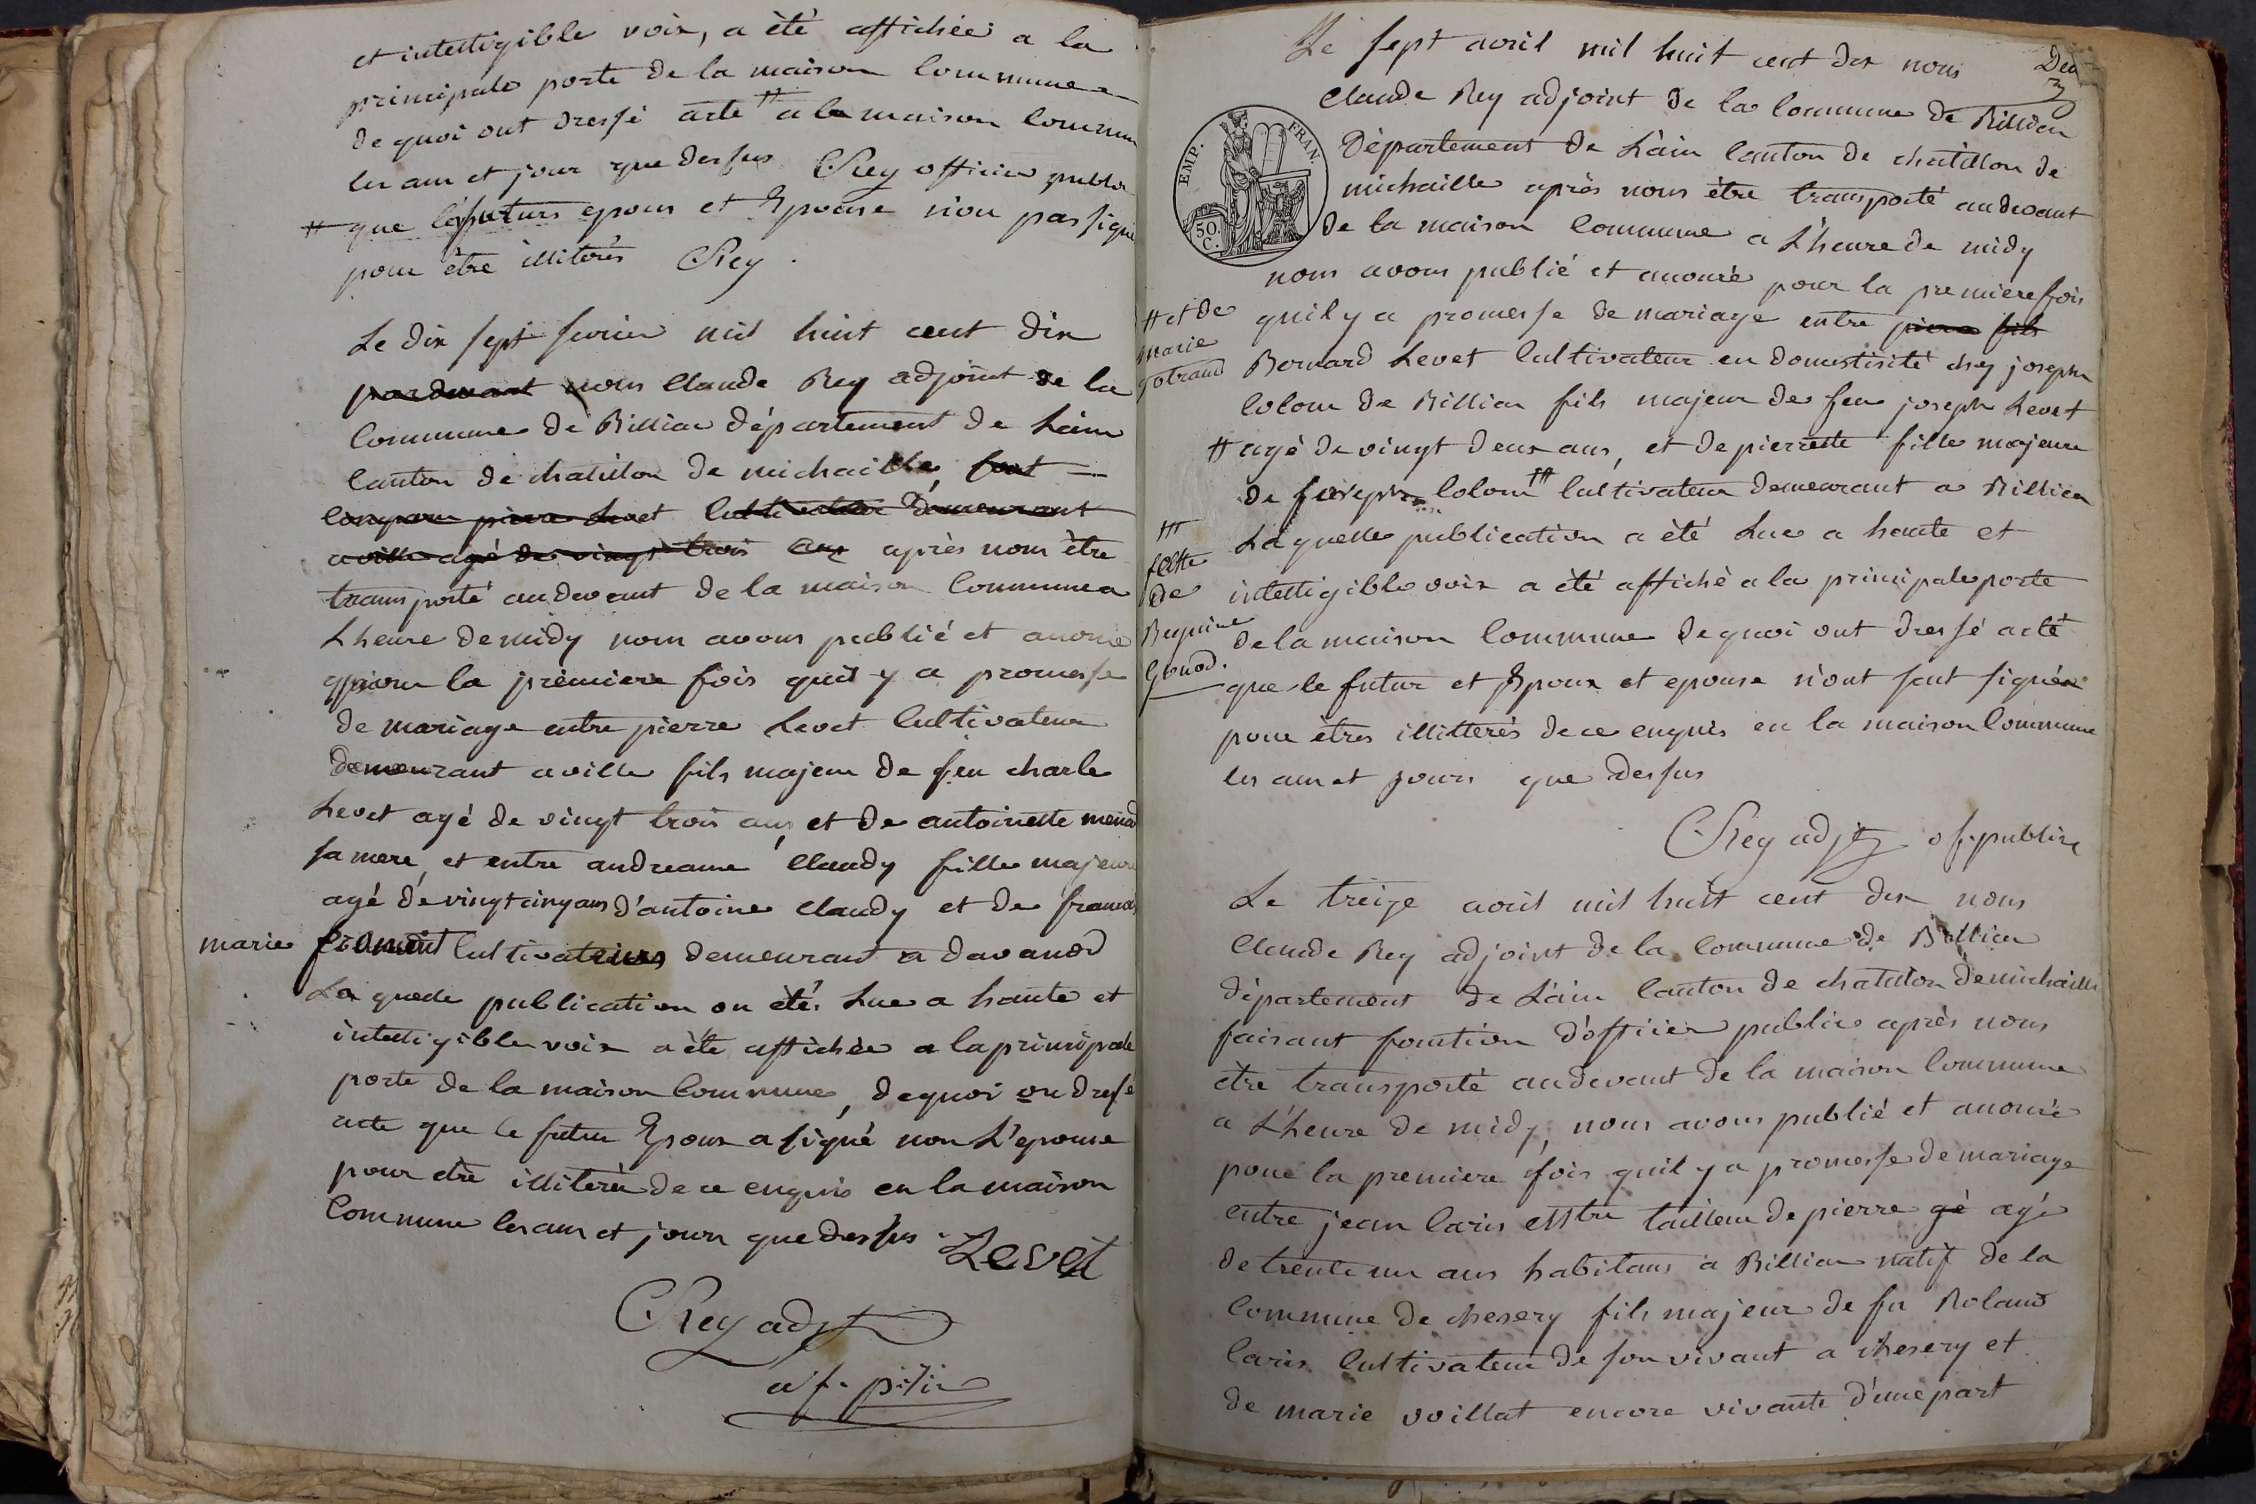 et intelligible voix, a èté affichée a la
principale porte de la maison Commune
de quoi ont dressé acte # a la maison Commun
les an et jour que dessus CRey officier public
# que les futurs epoux et Epouse n'on pas signé
pour être illiterés CRey.
Le dix sept fevrier mil huit cent dix
pardevant nous Claude Rey adjoint de la
Commune de Billiat département de Lain
Canton de chatillon de michaille, sont
comparu pierre Levet Cultivateur demeurant
a ville agé de vingt trois ans après nous être
transporté audevant de la maison Commune a
Lheure de midy nous avons publié et anoncé
pour la première fois quil y a promesse
de mariage entre pierre Levet Cultivateur
demeurant a ville fils majeur de feu charle
Levet agé de vingt trois ans, et de antoinette
sa mere, et entre andreanne Claudy fille majeure
agé de vingt cinq ans d'antoine Claudy et de
marie Cultivateurs demeurant a davanod
La quele publication on été Lue a haute et
intelligible voix a ète affichée a la principale
porte de la maison Commune, de quoi on dressé
acte que le futur Epoux a signé non L'epouse
pour etre illiterée de ce enquis en la maison
Commune les an et jours que dessus Levet
CRey adjt
of. public
Le sept avril mil huit cent dix nous
Claude Rey adjoint de la Commune de Billiat
EMP. FRAN.
50. C.
Département de L'ain Canton de chatillon de
michaille après nous être transporté audevant
de la maison Commune a L'heure de midy
nous avons publié et anoncé pour la premiere fois
quil y a promesse de mariage entre pierre fils
Bernard Levet Cultivateur en domestisité chez joseph
Colom de Billiat fils majeur de feu joseph Levet
# et de
marie
gotrand
# agé de vingt deux ans, et de pierrette fille majeure
de joseph Colom ## Cultivateur demeurant a Billiat
##
Laquelle publication a été Lue a haute et
de
intelligible voix a èté affiché a la principale porte
de la maison Commune de quoi ont dressé acte
que le futur et Epoux et epouse n'ont sont signés
pour êtres illitterés de ce enquis en la maison Commune
les an et jours que dessus
CRey adjt of. public
Le treize avril mil huit cent dix nous
Claude Rey adjoint de la Commune de Billiat
département de L'ain Canton de chatillon de michaille
faisant fonction d'officier public après nous
être transporté audevant de la maison Commune
a L'heure de midy, nous avons publié et anoncé
pour la premiere fois quil y a promesse de mariage
entre jean Caris tailleur de pierre gé agé
de trente un ans habitans a Billiat natif de la
Commune de chesery fils majeur de fu Roland
Caris Cultivateur de son vivant a chesery et
de marie voillat encore vivante d'une part